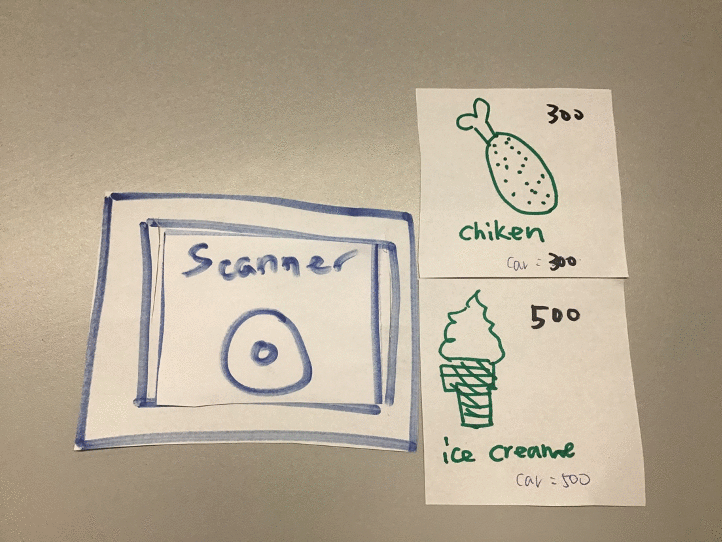 Scanner
300
chiken
Cal = 300
500
ice creame
Cal = 500